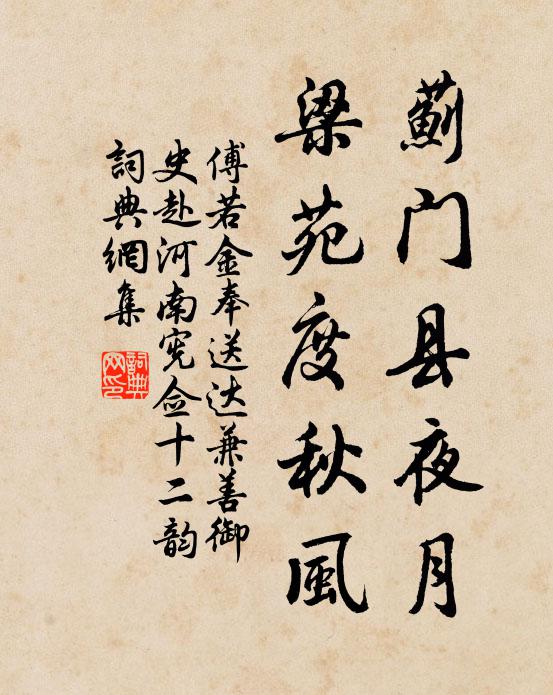 薊门县夜月
梁苑度秋風
傅若金奉送达兼善御
史赴河南宪佥十二韵
詞典網集
詞典网印